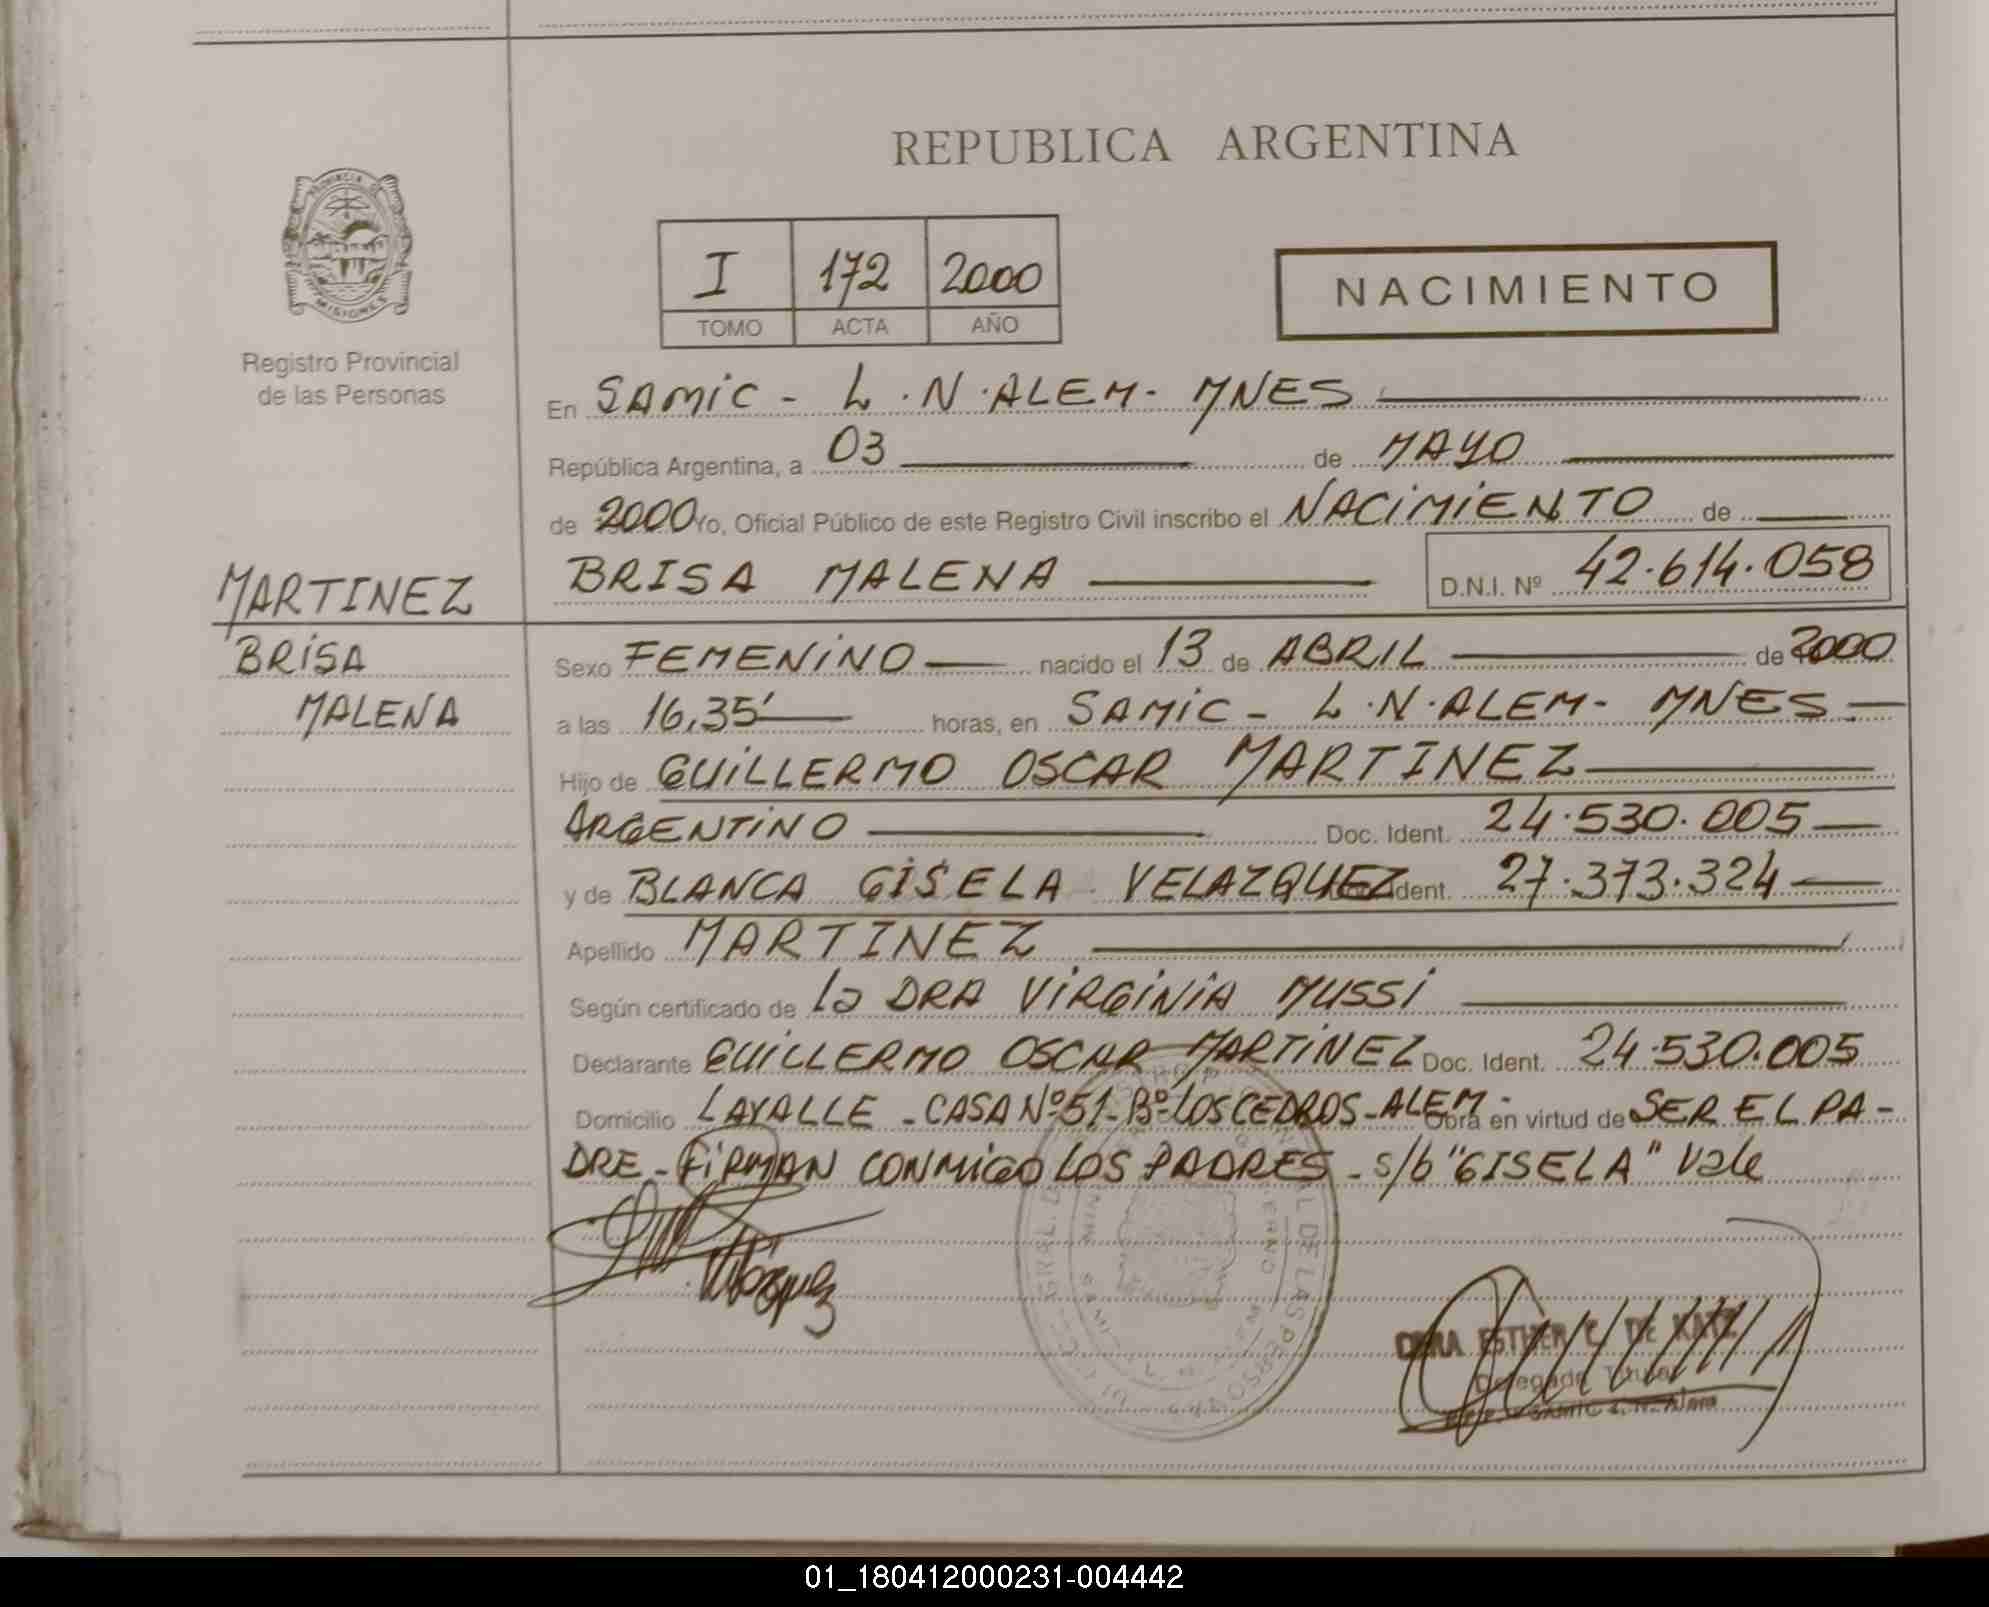 REPUBLICA ARGENTINA
PROVINCIA DE
MISIONES
Registro Provincial
de las Personas
I 172 2000
TOMO ACTA AÑO
NACIMIENTO
En SAMIC - L.N.ALEM- MNES
República Argentina, a 03 de MAYO
de 2000 Yo, Oficial Público de este Registro Civil inscribo el NACIMIENTO de
BRISA MALENA D.N.I. Nº 42.614.058
MARTINEZ
BRISA
MALENA
Sexo FEMENINO nacido el 13 de ABRIL de 2000
a las 16,35' horas, en SAMIC - L.N.ALEM- MNES
Hijo de GUILLERMO OSCAR MARTINEZ
ARGENTINO Doc. Ident. 24.530.005
y de BLANCA GISELA VELAZQUEZ Ident. 27.373.324
Apellido MARTINEZ
Según certificado de la DRA VIRGINIA MUSSI
Declarante GUILLERMO OSCAR MARTINEZ Doc. Ident. 24.530.005
Domicilio LAVALLE - CASA Nº 51- Bº LOS CEDROS - ALEM- Obra en virtud de SER EL PA-
DRE - FIRMAN CONMIGO LOS PADRES - s/b "GISELA" Vale
ESTHER C. DE KATZ
Delegada Titular
SAMIC L. N. Alem
01_180412000231-004442